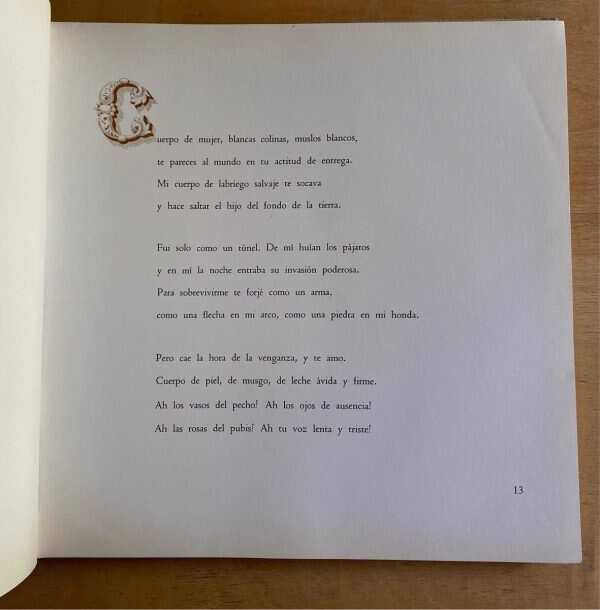 Cuerpo de mujer, blancas colinas, muslos blancos,
te pareces al mundo en tu actitud de entrega.
Mi cuerpo de labriego salvaje te socava
y hace saltar el hijo del fondo de la tierra.
Fui solo como un túnel. De mí huían los pájaros
y en mí la noche entraba su invasión poderosa.
Para sobrevivirme te forjé como un arma,
como una flecha en mi arco, como una piedra en mi honda.
Pero cae la hora de la venganza, y te amo.
Cuerpo de piel, de musgo, de leche ávida y firme.
Ah los vasos del pecho! Ah los ojos de ausencia!
Ah las rosas del pubis! Ah tu voz lenta y triste!
13